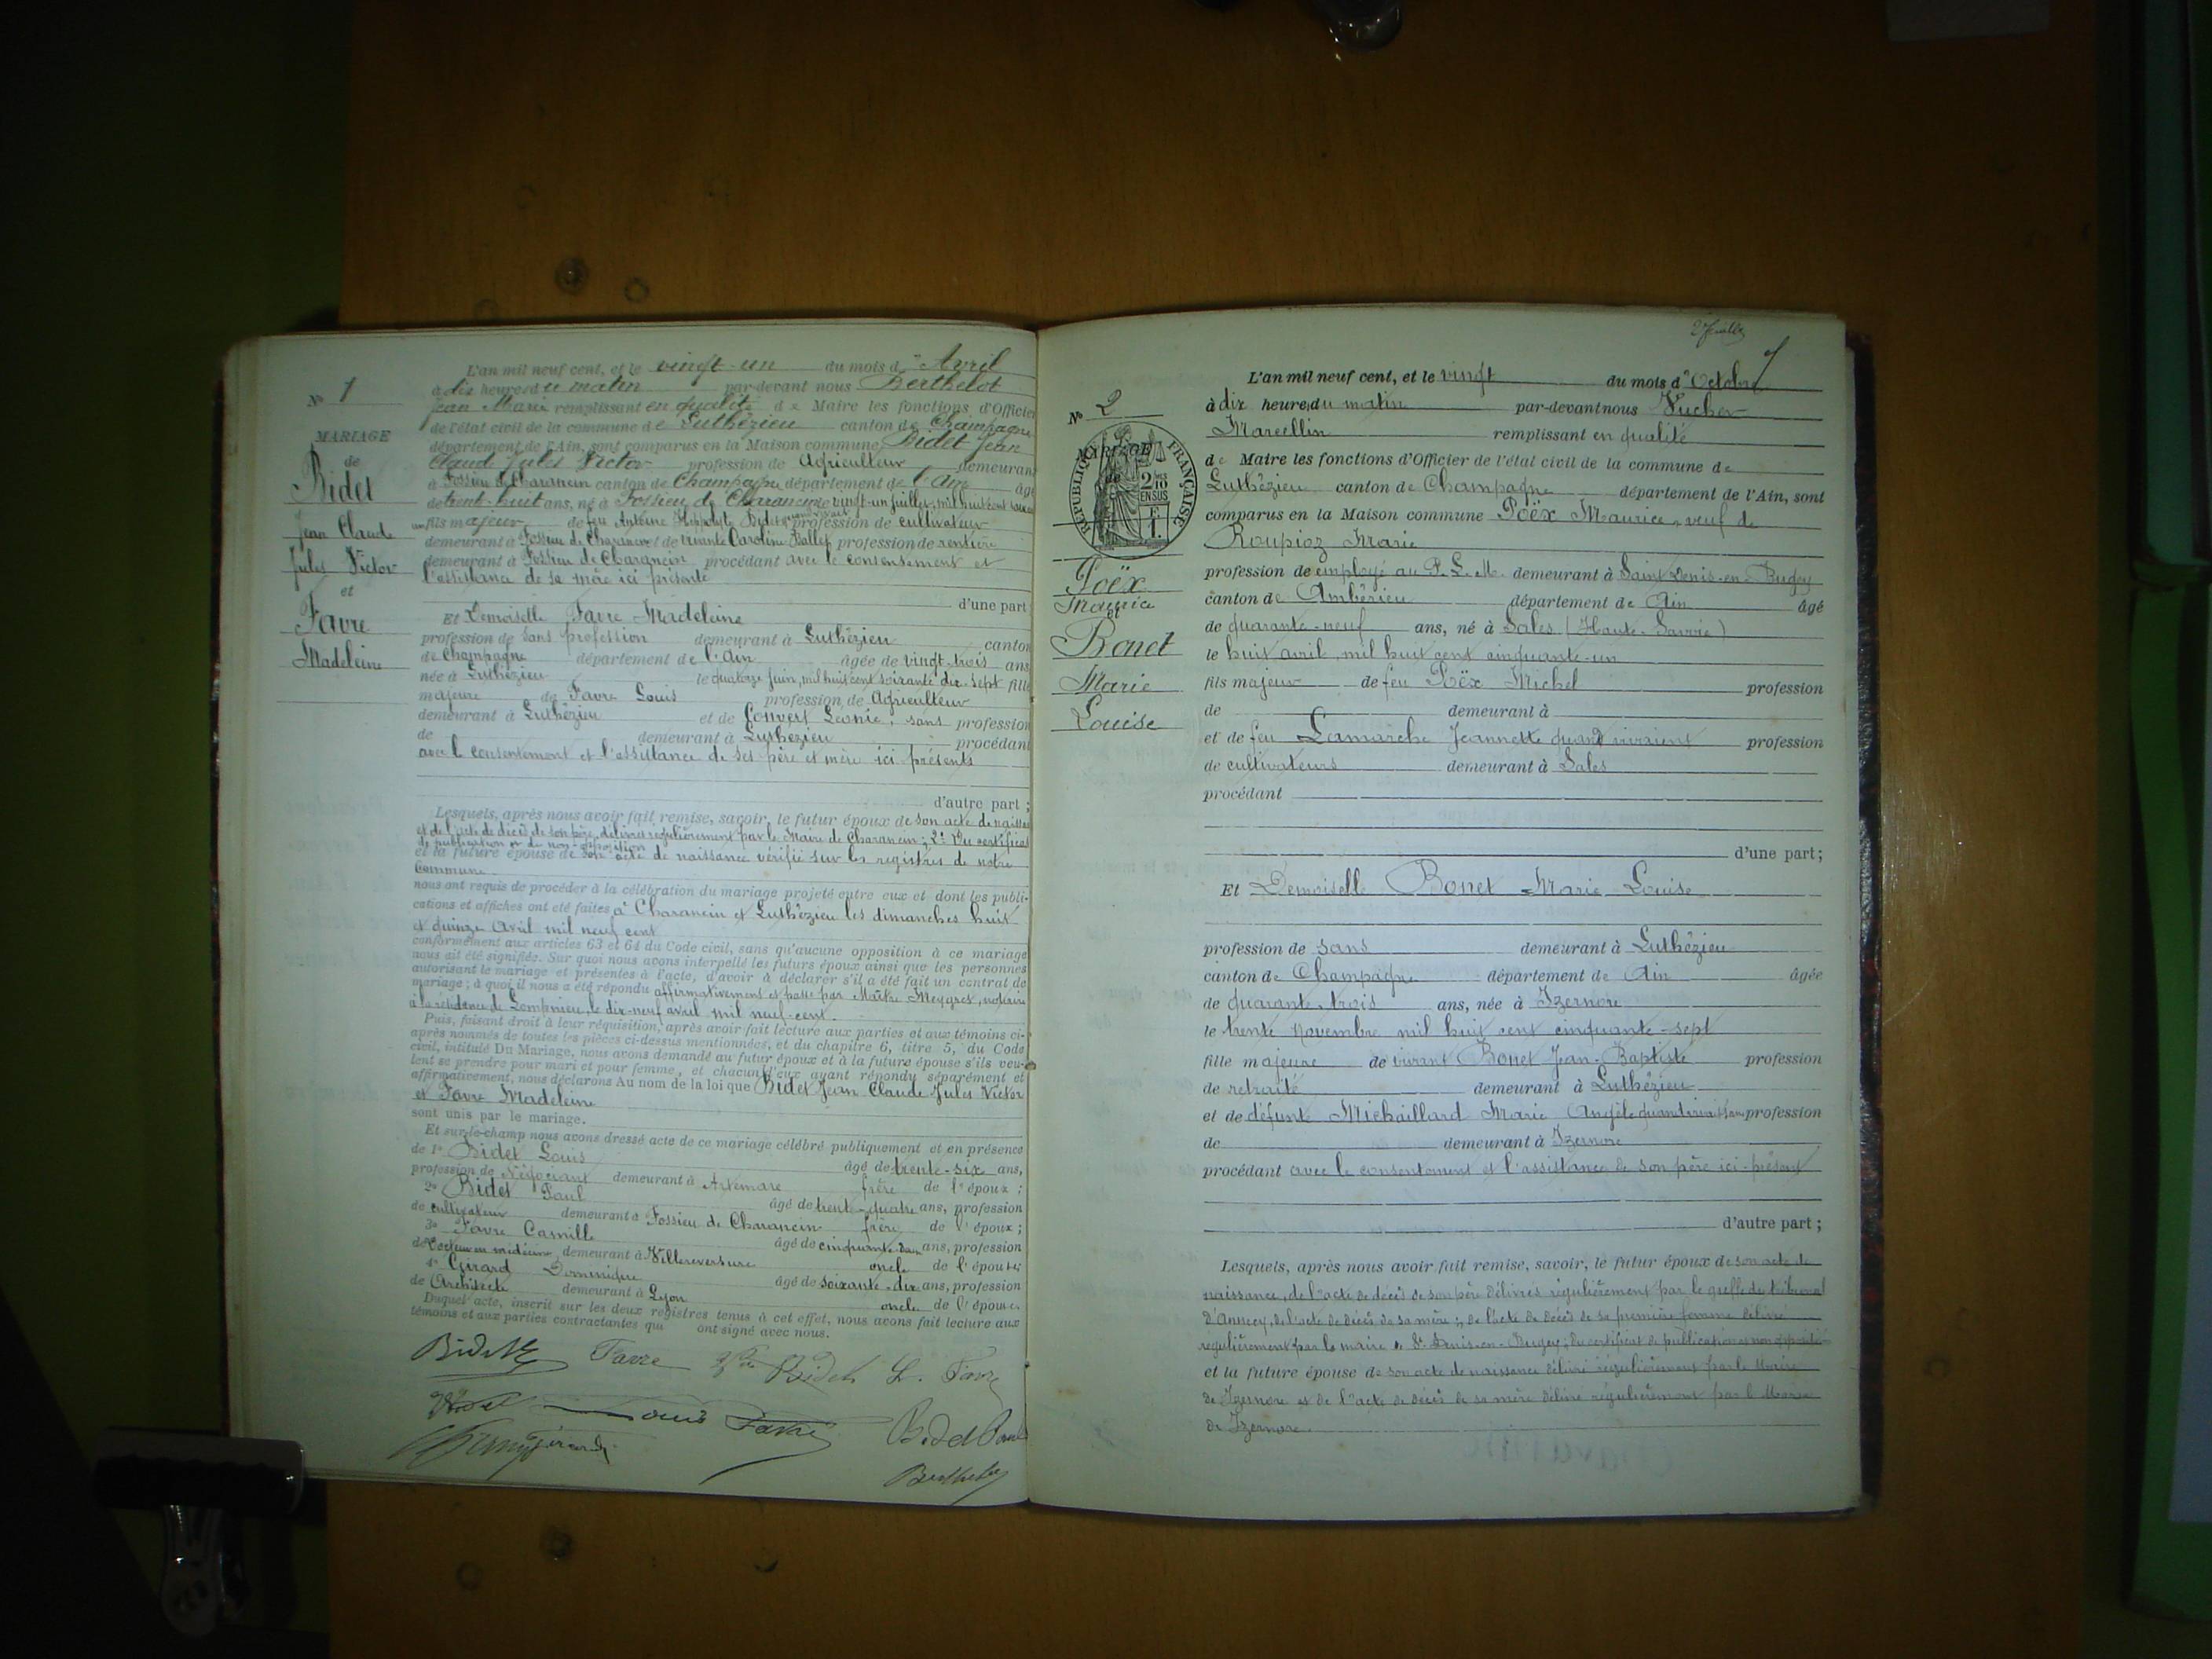 N° 1
MARIAGE
de
Bidet
Jean Claude
Jules Victor
et
Favre
Madeleine
L'an mil neuf cent, et le vingt-un du mois d'Avril
à dix heures du matin par-devant nous Berthelot
Jean Marie remplissant en qualité de Maire les fonctions d'Officier
de l'état civil de la commune de Luthézieu canton de Champagne
département de l'Ain, sont comparus en la Maison commune, Bidet Jean
Claude Jules Victor profession de Agriculteur demeurant
à Fossieu de Charancin canton de Champagne département de l'Ain âgé
de trent-huit ans, né à Fossieu de Charancin le vingt-un juillet mil huit cent
fils majeur de feu Antoine Hippolyte Bidet profession de cultivateur
demeurant à Fossieu de Charancin et de vivante Caroline Ballet profession de rentière
demeurant à Fossieu de Charancin procédant avec le consentement et
l'assistance de sa mère ici présente
d'une part
Et Demoiselle Favre Madeleine
profession de sans profession demeurant à Luthézieu canton
de Champagne département de l'Ain âgée de vingt-trois ans
née à Luthézieu le quatorze juin, mil huit cent soixante dix-sept fille
majeure de Favre Louis profession de Agriculteur
demeurant à Luthézieu et de Convert Léonie, sans profession
de demeurant à Luthézieu procédant
avec le consentement et l'assistance de ses père et mère ici présents
d'autre part ;
Lesquels, après nous avoir fait remise, savoir, le futur époux de son acte de naissa
et de l'acte de décès de son père, délivrés régulièrement par le Maire de Charancin ; 2° Du certificat
de publication et de non-opposition
et la future épouse de son acte de naissance vérifié sur les registres de notre
Commune
nous ont requis de procéder à la célébration du mariage projeté entre eux et dont les publi-
cations et affiches ont été faites à Charancin et Luthézieu les dimanches huit
et quinze Avril mil neuf cent
conformément aux articles 63 et 64 du Code civil, sans qu'aucune opposition à ce mariage
nous ait été signifiée. Sur quoi nous avons interpellé les futurs époux ainsi que les personnes
autorisant le mariage et présentes à l'acte, d'avoir à déclarer s'il a été fait un contrat de
mariage ; à quoi il nous a été répondu affirmativement et passé par Maître Meygret, notaire
à la résidence de Lompnieu, le dix-neuf avril mil neuf-cent.
Puis, faisant droit à leur réquisition, après avoir fait lecture aux parties et aux témoins ci-
après nommés de toutes les pièces ci-dessus mentionnées, et du chapitre 6, titre 5, du Code
civil, intitulé Du Mariage, nous avons demandé au futur époux et à la future épouse s'ils veu-
lent se prendre pour mari et pour femme, et chacun d'eux ayant répondu séparément et
affirmativement, nous déclarons Au nom de la loi que Bidet Jean Claude Jules Victor
et Favre Madeleine
sont unis par le mariage.
Et sur-le-champ nous avons dressé acte de ce mariage célébré publiquement et en présence
de 1° Bidet Louis âgé de trente-six ans,
profession de Négociant demeurant à Artemare frère de l'époux ;
2° Bidet Paul âgé de trent-quatre ans, profession
de cultivateur demeurant à Fossieu de Charancin frère de l'époux ;
3° Favre Camille âgé de cinquante ans, profession
de Docteur en médecine demeurant à Villereversure oncle de l'épouse
4° Girard Dominique âgé de soixante-dix ans, profession
de Architecte demeurant à Lyon oncle de l'épouse
Duquel acte, inscrit sur les deux registres tenus à cet effet, nous avons fait lecture aux
témoins et aux parties contractantes qui ont signé avec nous.
Bidet Favre Bidet L. Favre
Louis Favre Bidet Paul
Girard
Berthelot
2° feuille
7
N° 2
MARIAGE
de
RÉPUBLIQUE FRANÇAISE
2/10 EN SUS
Poëx
Maurice
et
Bonet
Marie
Louise
L'an mil neuf cent, et le vingt du mois d'Octobre
à dix heures du matin par-devant nous Vucher
Marcellin remplissant en qualité
de Maire les fonctions d'Officier de l'état civil de la commune de
Luthézieu canton de Champagne département de l'Ain, sont
comparus en la Maison commune Poëx Maurice, veuf de
Roupioz Marie
profession de employé au P. L. M. demeurant à Saint Denis-en-Bugey
canton de Ambérieu département de Ain âgé
de quarante-neuf ans, né à Sales (Haute-Savoie)
le huit avril mil huit cent cinquante-un
fils majeur de feu Poëx Michel profession
de demeurant à
et de feu Lamarche Jeannette quand vivaient profession
de cultivateurs demeurant à Sales
procédant
d'une part ;
Et Demoiselle Bonet Marie-Louise
profession de sans demeurant à Luthézieu
canton de Champagne département de Ain âgée
de quarante-trois ans, née à Izernore
le trente novembre mil huit cent cinquante-sept
fille majeure de vivant Bonet Jean-Baptiste profession
de retraité demeurant à Luthézieu
et de défunt Michaillard Marie Angèle quand vivait sans profession
de demeurant à Izernore
procédant avec le consentement et l'assistance de son père ici-présent
d'autre part ;
Lesquels, après nous avoir fait remise, savoir, le futur époux de son acte de
naissance, de l'acte de décès de son père délivrés régulièrement par le greffe du tribunal
d'Annecy, de l'acte de décès de sa mère ; de l'acte de décès de sa première femme délivré
régulièrement par le maire de St Denis-en-Bugey ; du certificat de publication et non opposition
et la future épouse de son acte de naissance délivré régulièrement par le Maire
de Izernore et de l'acte de décès de sa mère délivré régulièrement par le Maire
de Izernore